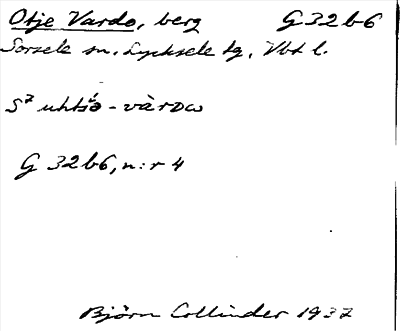 Otje Vardo, berg G 32 b 6
Sorsele sn. Lycksele tg. Vbt l.
G 32 b 6, n:r 4
Björn Collinder 1937